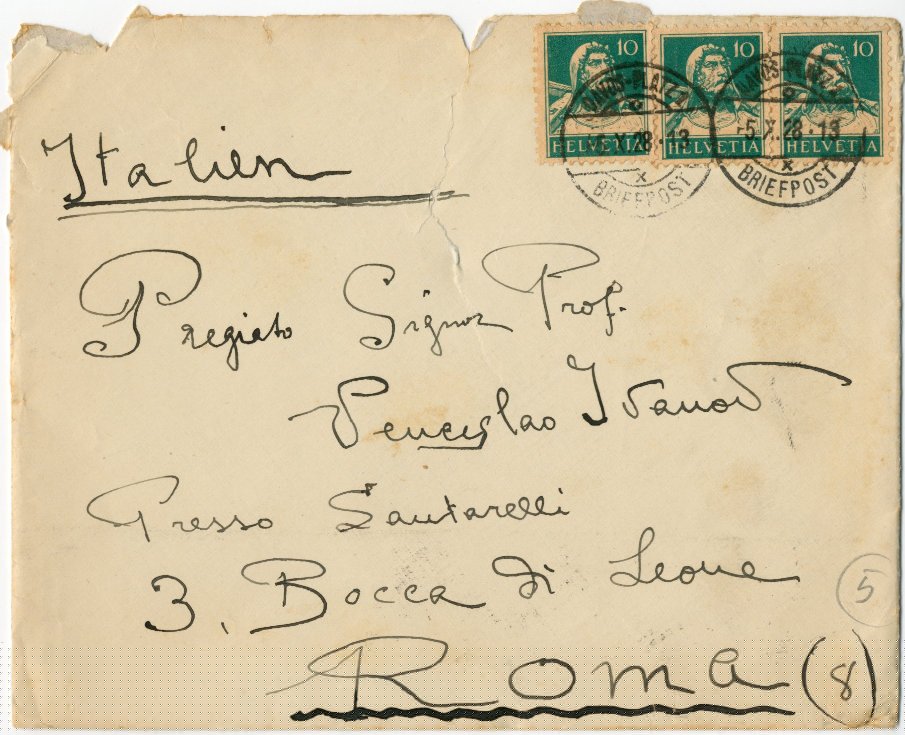 10 10 10
HELVETIA HELVETIA HELVETIA
DAVOS-PLATZ DAVOS-PLATZ
-5.X.28.-13 -5.X.28.-13
BRIEFPOST BRIEFPOST
Italien
Pregiato Signor Prof.
Venceslao Ivanov
Presso Santarelli
3, Bocca di Leone
5
Roma (8)